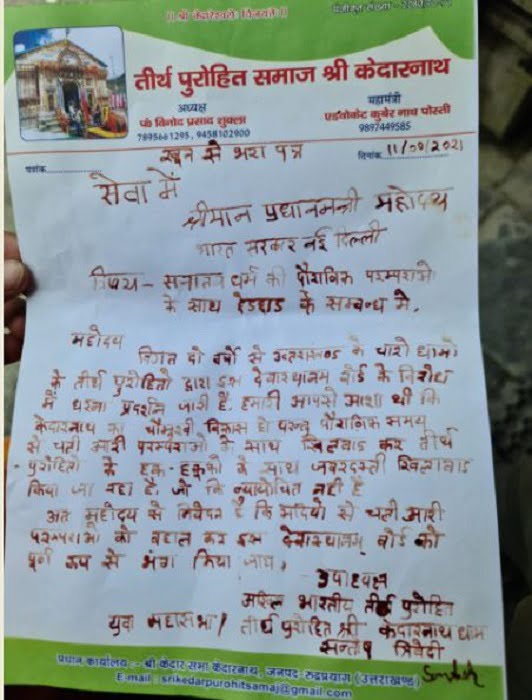 ।। श्री केदारेश्वरो विजयते ।।
पंजीकृत संख्या -
तीर्थ पुरोहित समाज श्री केदारनाथ
अध्यक्ष
पं० विनोद प्रसाद शुक्ला
7895661295, 9458102900
महामंत्री
एडवोकेट कुबेर नाथ पोस्ती
9897449585
खून से भरा पत्र
पत्रांक
दिनांक 11/09/2021
सेवा में
श्रीमान प्रधानमन्त्री महोदय
भारत सरकार नई दिल्ली
विषय - सनातन धर्म की पौराणिक परम्पराओ
के साथ छेडछाड के सम्बन्ध मे.
महोदय
विगत दो वर्षो से उत्तराखण्ड के चारो धामो
के तीर्थ पुरोहितो द्वारा इस देवास्थानम बोर्ड के विरोध
में धरना प्रदर्शन जारी है. हमारी आपसे आशा थी कि
केदारनाथ का चौमुखी विकास हो परन्तु पौराणिक समय
से चली आरी परम्पराओ के साथ खिलवाड कर तीर्थ
पुरोहितो के हक-हकूको के साथ जबरदस्ती खिलवाड
किया जा रहा है. जो कि न्यायोचित नही है
अतः महोदय से निवेदन है कि सदियो से चली आरी
परम्पराओ को बहाल कर इस देवास्थानम् बोर्ड को
पूर्ण रूप से भंग किया जाय।
उपाध्यक्ष
अखिल भारतीय तीर्थ पुरोहित
युवा महासभा / तीर्थ पुरोहित श्री केदारनाथ धाम
सन्तोष त्रिवेदी
प्रधान कार्यालय :- श्री केदार सभा केदारनाथ, जनपद- रुद्रप्रयाग (उत्तराखण्ड)
E-mail : srikedarpurohitsamaj@gmail.com